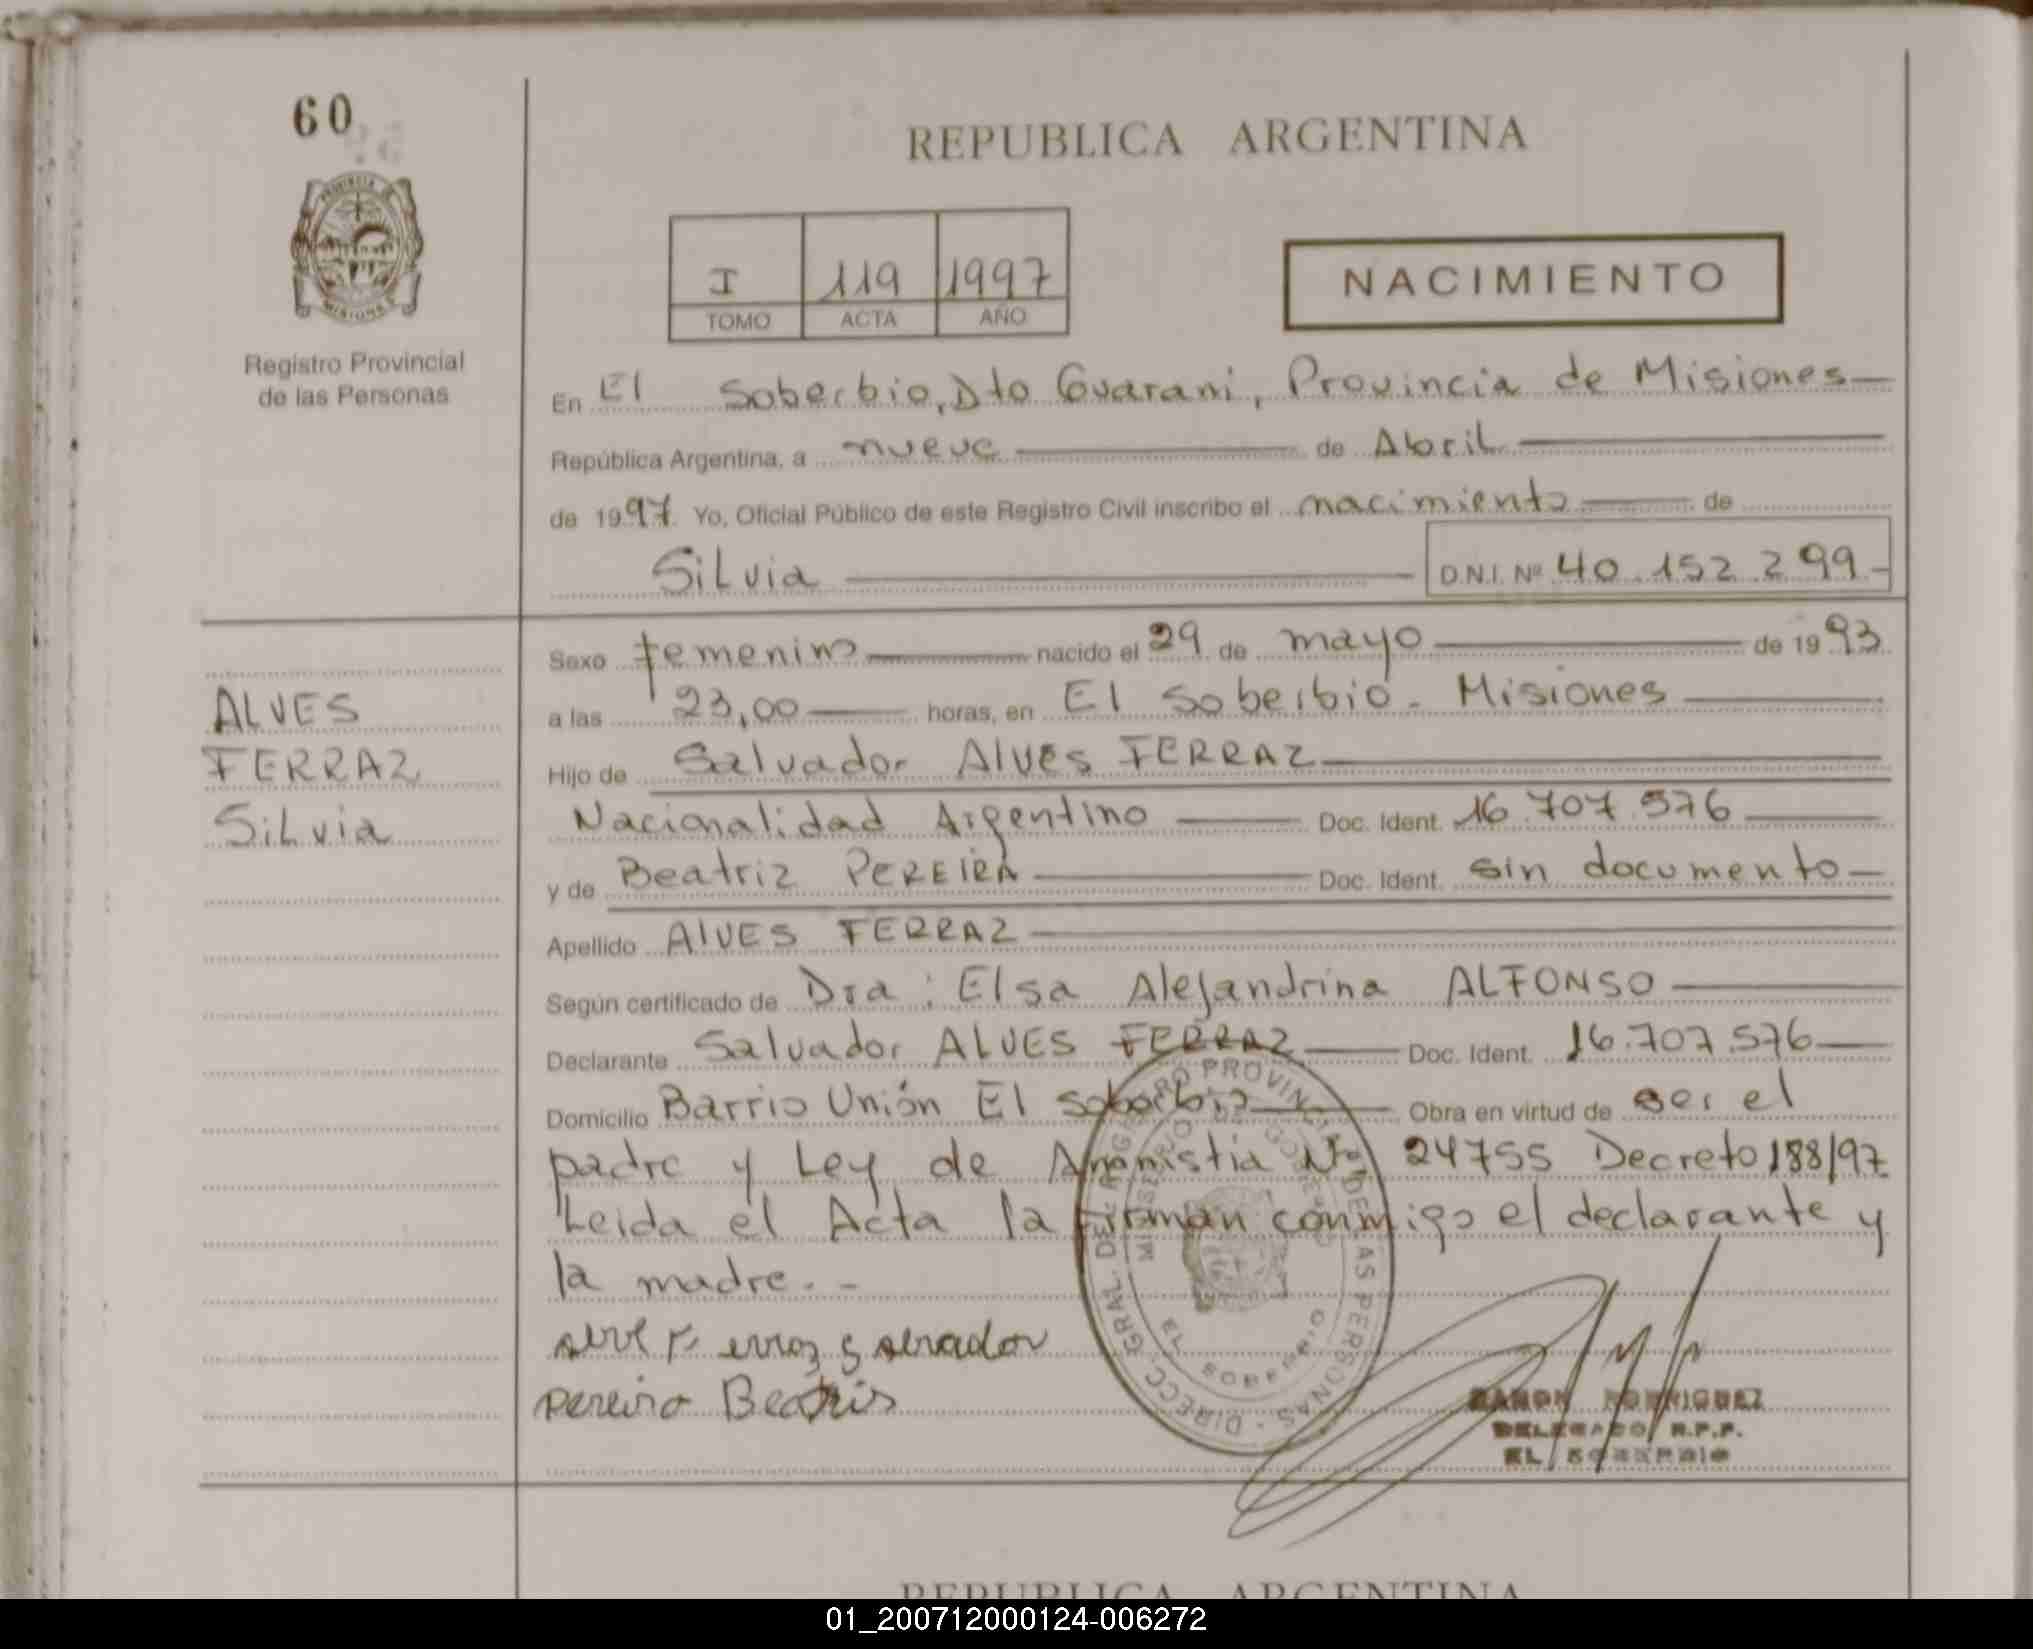 60
REPUBLICA ARGENTINA
PROVINCIA DE
MISIONES
Registro Provincial
de las Personas
I 119 1997
TOMO ACTA AÑO
NACIMIENTO
En El Soberbio, Dto Guarani, Provincia de Misiones
República Argentina, a nueve de Abril
de 1997 Yo, Oficial Público de este Registro Civil inscribo el nacimiento de
Silvia D.N.I. Nº 40.152.299
Sexo femenino nacido el 29 de mayo de 1993
a las 23,00 horas, en El Soberbio - Misiones
ALVES
FERRAZ
Silvia
Hijo de Salvador Alves FERRAZ
Nacionalidad Argentino Doc. Ident. 16.707.576
y de Beatriz PEREIRA Doc. Ident. sin documento
Apellido AlVES FERRAZ
Según certificado de Dra: Elsa Alejandrina ALFONSO
Declarante Salvador ALVES FERRAZ Doc. Ident. 16.707.576
Domicilio Barrio Unión El Soberbio Obra en virtud de ser el
padre y Ley de Anamistia Nº 24755 Decreto 188/97
Leida el Acta la firman conmigo el declarante y
la madre. -
pereira Beatris
DIRECC. GRAL. DEL REGISTRO PROVINCIAL DE LAS PERSONAS
MINISTERIO GOBIERNO
EL SOBERBIO
RAMON RODRIGUEZ
DELEGADO R.P.P.
EL SOBERBIO
REPUBLICA ARGENTINA
01_200712000124-006272